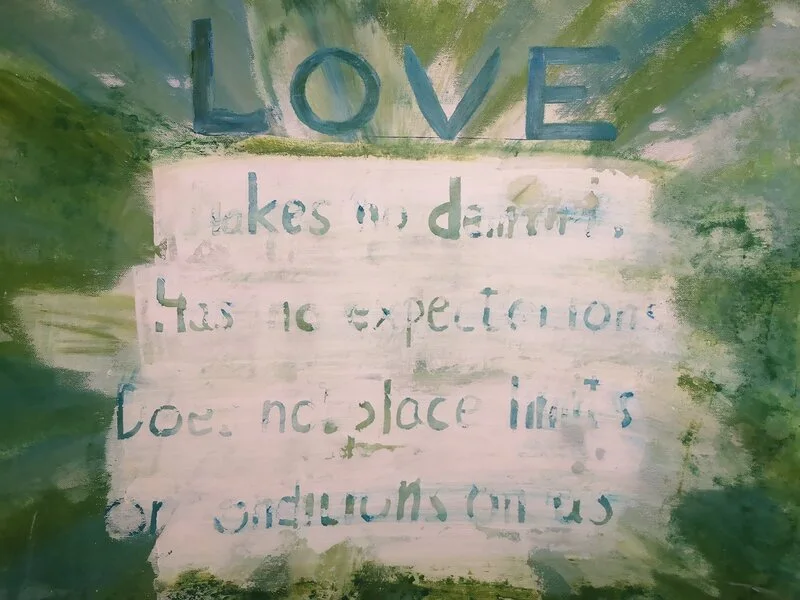 LOVE
Makes no demands,
Has no expectations
Does not place limits
or conditions on us